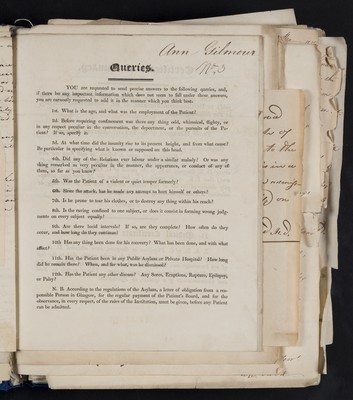 Ann Gilmour
No. 3
Queries.
YOU are requested to send precise answers to the following queries, and,
if there be any important information which does not seem to fall under these answers,
you are earnestly requested to add it in the manner which you think best.
1st. What is the age, and what was the employment of the Patient?
2d. Before requiring confinement was there any thing odd, whimsical, flighty, or
in any respect peculiar in the conversation, the deportment, or the pursuits of the Pa-
tient? If so, specify it.
3d. At what time did the insanity rise to its present height, and from what cause?
Be particular in specifying what is known or supposed on this head.
4th. Did any of the Relations ever labour under a similar malady? Or was any
thing remarked as very peculiar in the manner, the appearance, or conduct of any of
them, so far as you know?
5th. Was the Patient of a violent or quiet temper formerly?
6th. Since the attack, has he made any attempt to hurt himself or others?
7th. Is he prone to tear his clothes, or to destroy any thing within his reach?
8th. Is the raving confined to one subject, or does it consist in forming wrong judg-
ments on every subject equally?
9th. Are there lucid intervals? If so, are they complete? How often do they
occur, and how long do they continue?
10th. Has any thing been done for his recovery? What has been done, and with what
effect?
11th. Has the Patient been in any Public Asylum or Private Hospital? How long
did he remain there? When, and for what, was he dismissed?
12th. Has the Patient any other disease? Any Sores, Eruptions, Rupture, Epilepsy,
or Palsy?
N. B. According to the regulations of the Asylum, a letter of obligation from a res-
ponsible Person in Glasgow, for the regular payment of the Patient's Board, and for the
observance, in every respect, of the rules of the Institution, must be given, before any Patient
can be admitted.